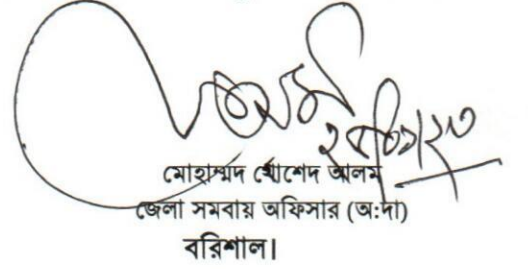 মোহাম্মদ খোশেদ আলম
জেলা সমবায় অফিসার (অ:দা)
বরিশাল।